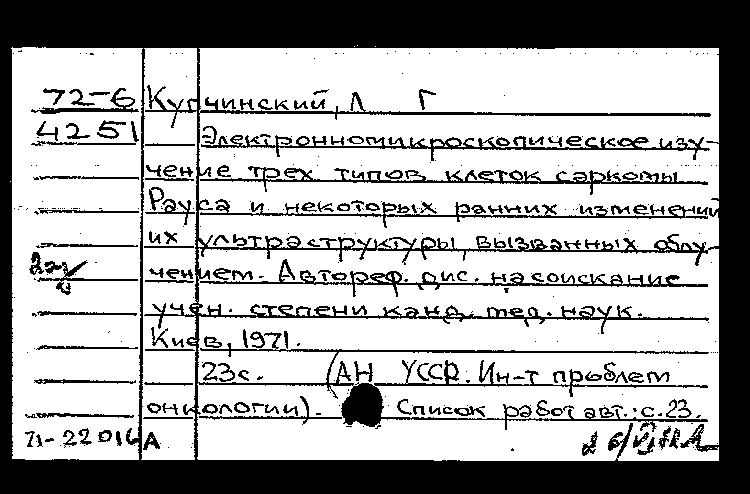 72-6 Купчинский, Л Г
4251 Электронномикроскопическое изу-
чение трех типов клеток саркомы
Рауса и некоторых ранних изменений
их ультраструктуры, вызванных облу-
чением. Автореф. дис. на соискание
учен. степени канд. мед. наук.
Киев, 1971.
23с. (АН УССР. Ин-т проблем
онкологии). Список работ авт.: с.23.
71-22016 А